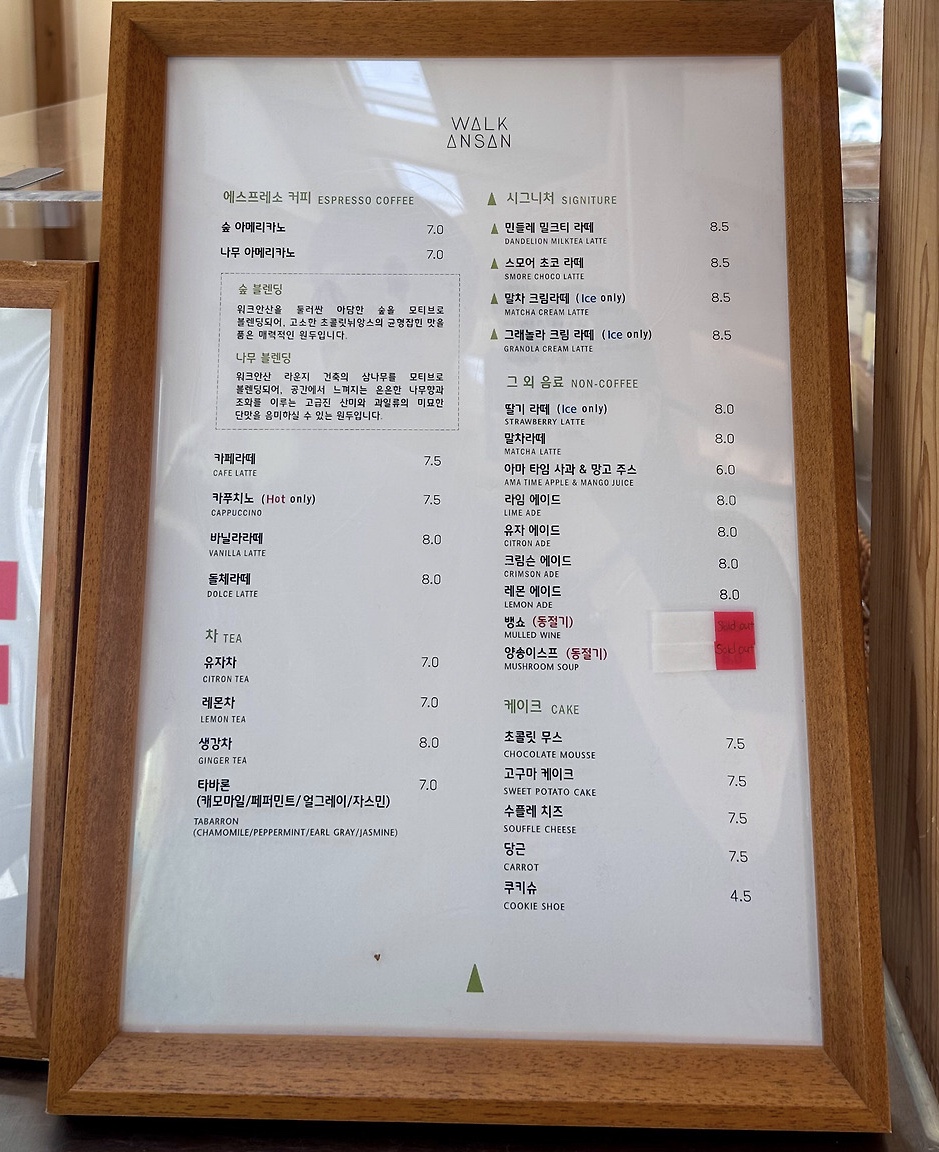 WALK
ANSAN
에스프레소 커피 ESPRESSO COFFEE
숲 아메리카노 7.0
나무 아메리카노 7.0
숲 블렌딩
워크안산을 둘러싼 아담한 숲을 모티브로
블렌딩되어, 고소한 초콜릿뉘앙스의 균형잡힌 맛을
품은 매력적인 원두입니다.
나무 블렌딩
워크안산 라운지 건축의 삼나무를 모티브로
블렌딩되어, 공간에서 느껴지는 은은한 나무향과
조화를 이루는 고급진 산미와 과일류의 미묘한
단맛을 음미하실 수 있는 원두입니다.
카페라떼 7.5
CAFE LATTE
카푸치노 (Hot only) 7.5
CAPPUCCINO
바닐라라떼 8.0
VANILLA LATTE
돌체라떼 8.0
DOLCE LATTE
차 TEA
유자차 7.0
CITRON TEA
레몬차 7.0
LEMON TEA
생강차 8.0
GINGER TEA
타바론 7.0
(캐모마일/페퍼민트/얼그레이/자스민)
TABARRON
(CHAMOMILE/PEPPERMINT/EARL GRAY/JASMINE)
시그니처 SIGNITURE
민들레 밀크티 라떼 8.5
DANDELION MILKTEA LATTE
스모어 초코 라떼 8.5
SMORE CHOCO LATTE
말차 크림라떼 (Ice only) 8.5
MATCHA CREAM LATTE
그래놀라 크림 라떼 (Ice only) 8.5
GRANOLA CREAM LATTE
그 외 음료 NON-COFFEE
딸기 라떼 (Ice only) 8.0
STRAWBERRY LATTE
말차라떼 8.0
MATCHA LATTE
아마 타임 사과 & 망고 주스 6.0
AMA TIME APPLE & MANGO JUICE
라임 에이드 8.0
LIME ADE
유자 에이드 8.0
CITRON ADE
크림슨 에이드 8.0
CRIMSON ADE
레몬 에이드 8.0
LEMON ADE
뱅쇼 (동절기) Sold out
MULLED WINE
양송이스프 (동절기) Sold out
MUSHROOM SOUP
케이크 CAKE
초콜릿 무스 7.5
CHOCOLATE MOUSSE
고구마 케이크 7.5
SWEET POTATO CAKE
수플레 치즈 7.5
SOUFFLE CHEESE
당근 7.5
CARROT
쿠키슈 4.5
COOKIE SHOE